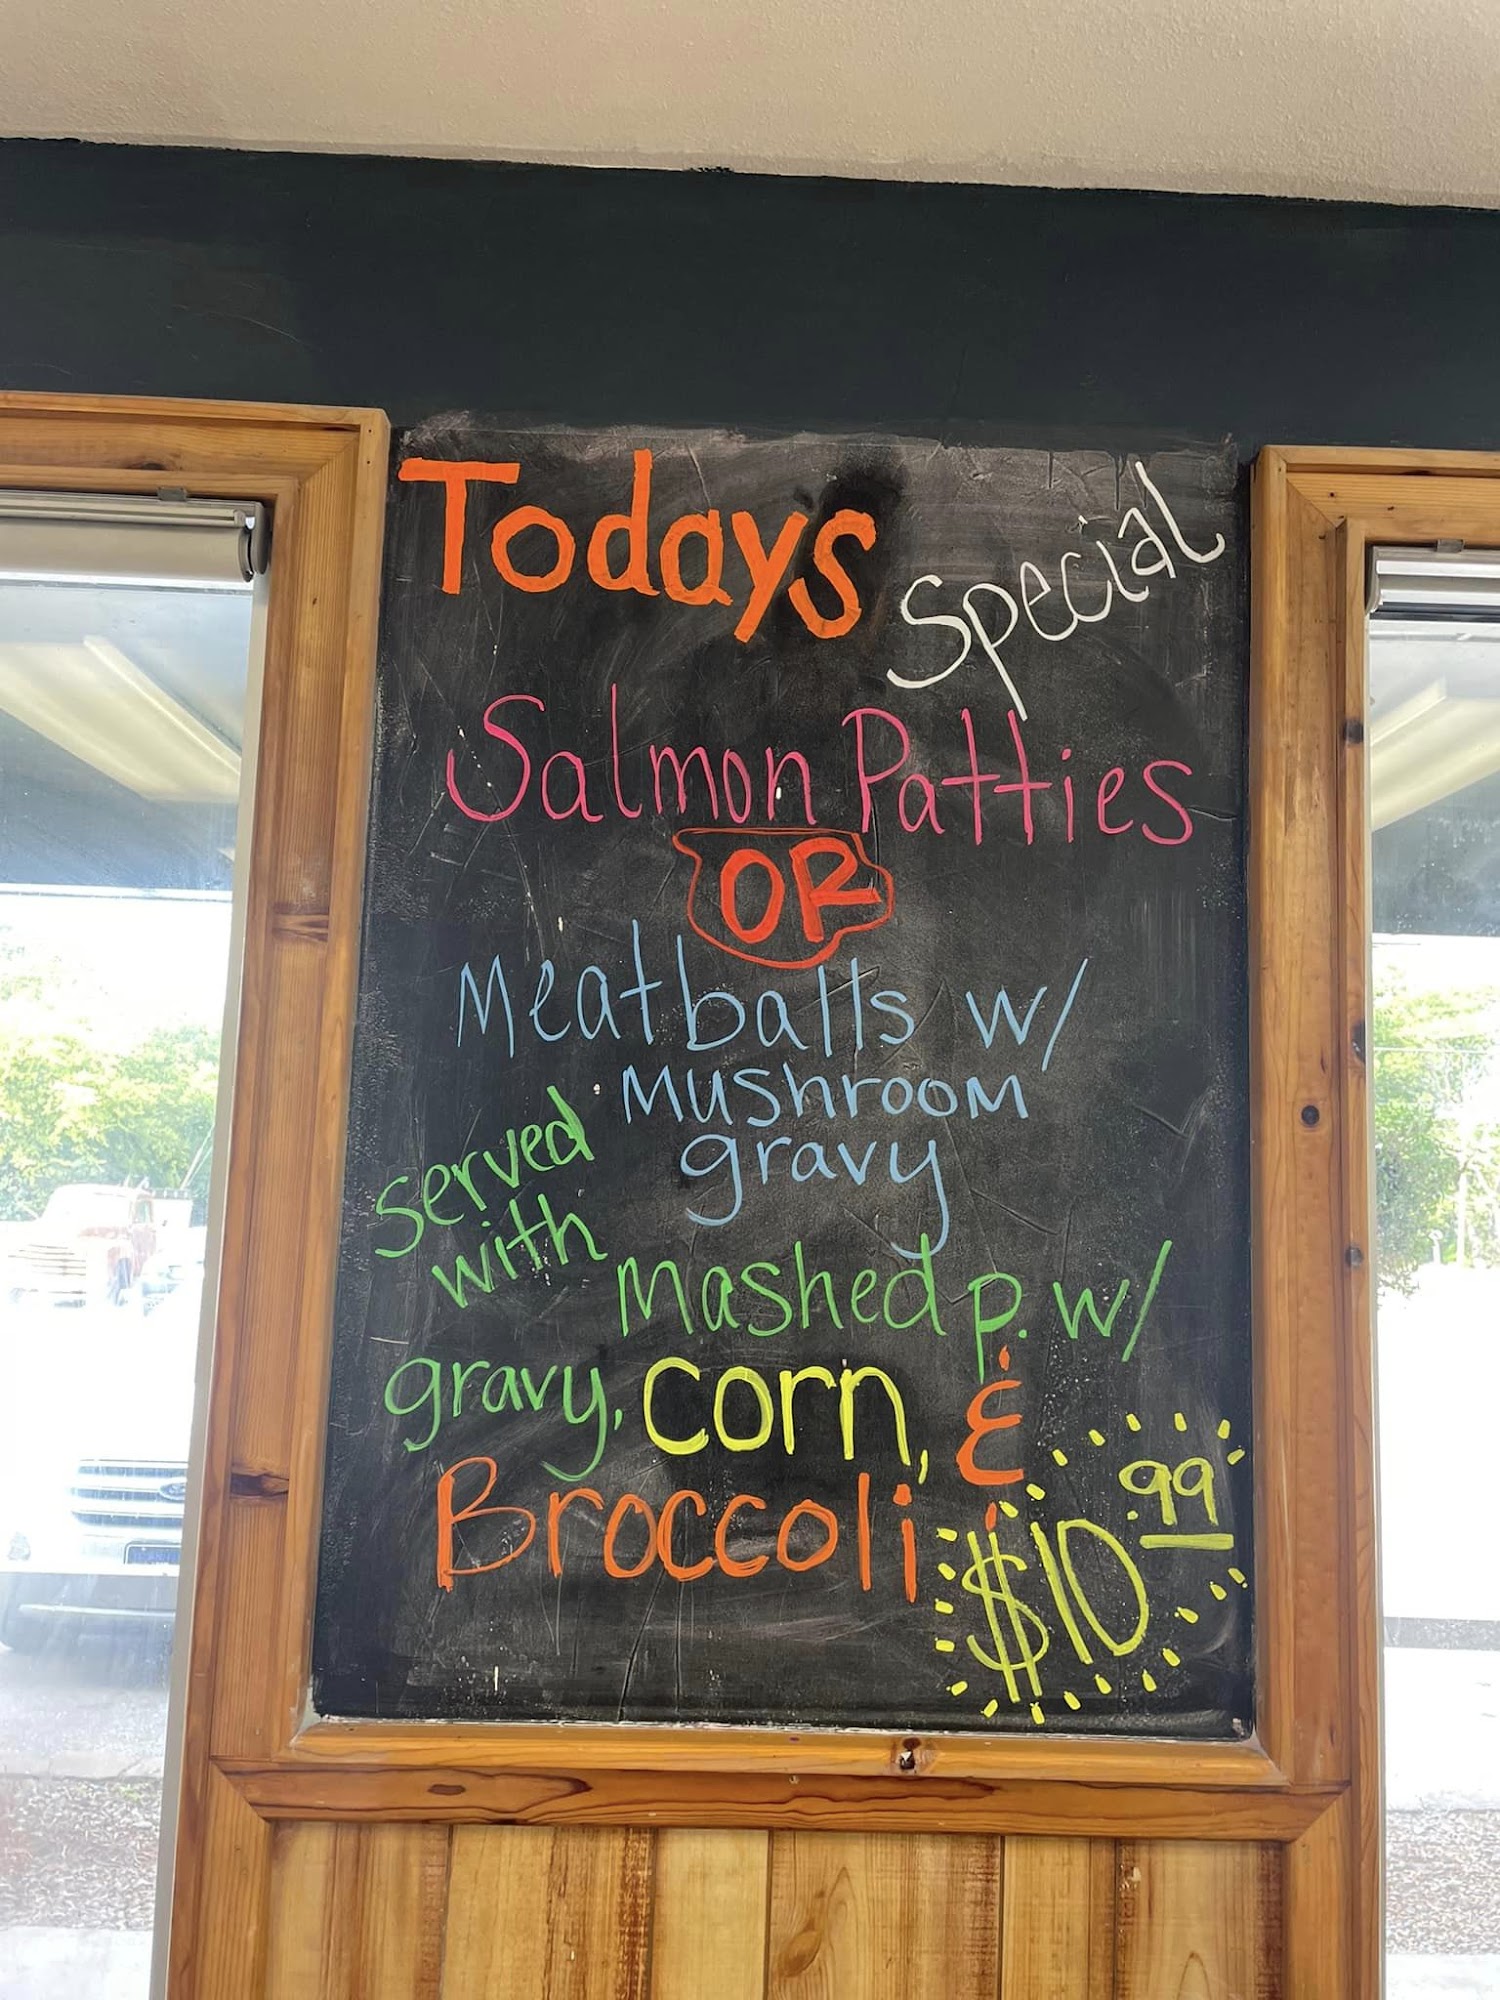 Todays Special
Salmon Patties
OR
Meatballs w/
Mushroom
gravy
served
with Mashed p. w/
gravy, corn, &
Broccoli $10.99